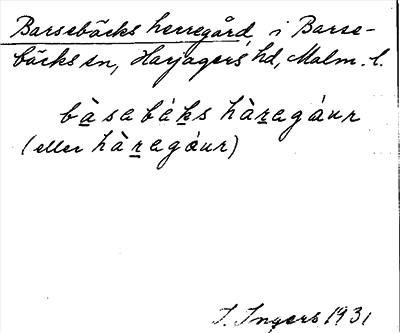 Barsebäcks herregård, i Barse-
bäcks sn, Harjagers hd, Malm. l.
bàsabéks hàragáur
(eller hàragœur)
I. Ingers 1931